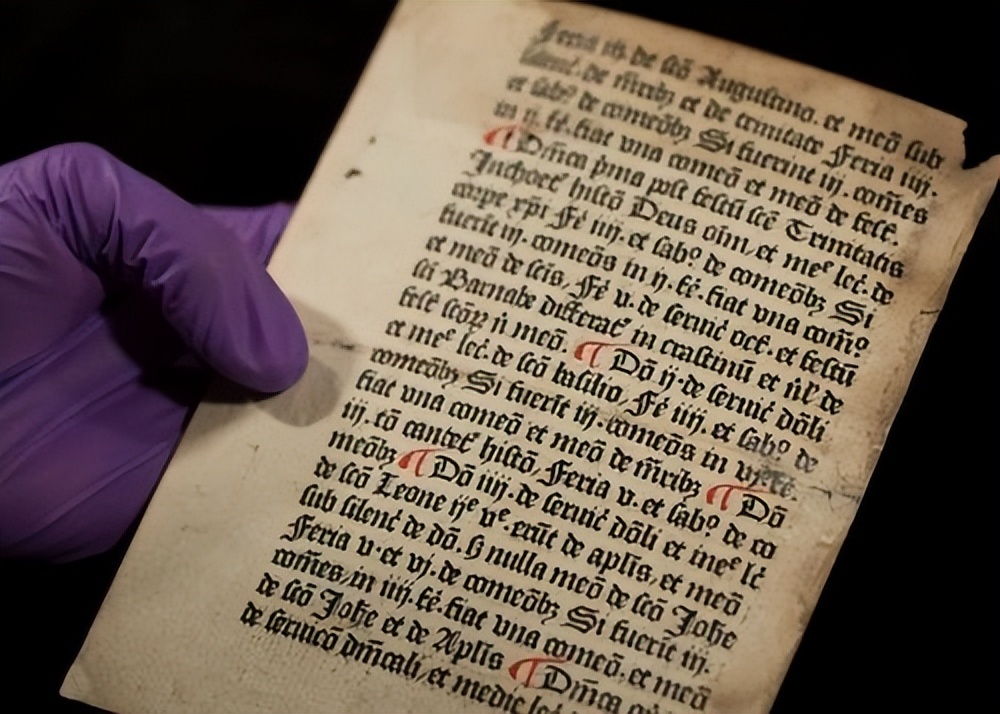 Feria iij. de scō Augustino. et meō sub
silenc̄. de m̄rib₃ et de trinitate Feria iiij.
et sabº de comeōb₃ Si fuerint iij. com̄es
in ij. fe. fiat vna comeō et meō de fest̄.
¶ Dn̄ica pima post festū scē Trinitatis
Inchoet̄ histō Deus oīm, et meᵉ lec̄. de
corpe xpi Fe iiij. et sabº de comeōb₃ Si
fuerit iij. comeōs in ij. fe. fiat vna com̄º
et meō de scīs, Fe v. de seruic̄ oct̄. et festū
sci Barnabe differat̄ in crastinū et nl̄ de
fest̄ scōꝝ n meō ¶ Dō ij. de seruic̄ dōli
et meᵉ lec̄. de scō basilio, Fe iiij. et sabº de
comeōb₃ Si fuerit iij. comeōs in
fiat vna comeō et meō de m̄rib₃ ¶ Dō
iij. tō cantet̄ histō, Feria v. et sabº de co
meōb₃ ¶ Dō iiij. de seruic̄ dōli et meᵉ lc̄
de scō Leone ijᵉ vᵉ. erūt de aplīs, et meō
sub silenc̄ de dō. ß nulla meō de scō Johe
Feria v. et vj. de comeōb₃ Si fuerit iij.
com̄es, in iiij. fe. fiat vna comeō, et meō
de scō Johe et de Aplīs ¶ Dn̄ica
de seruicō dn̄icali, et medie lec̄